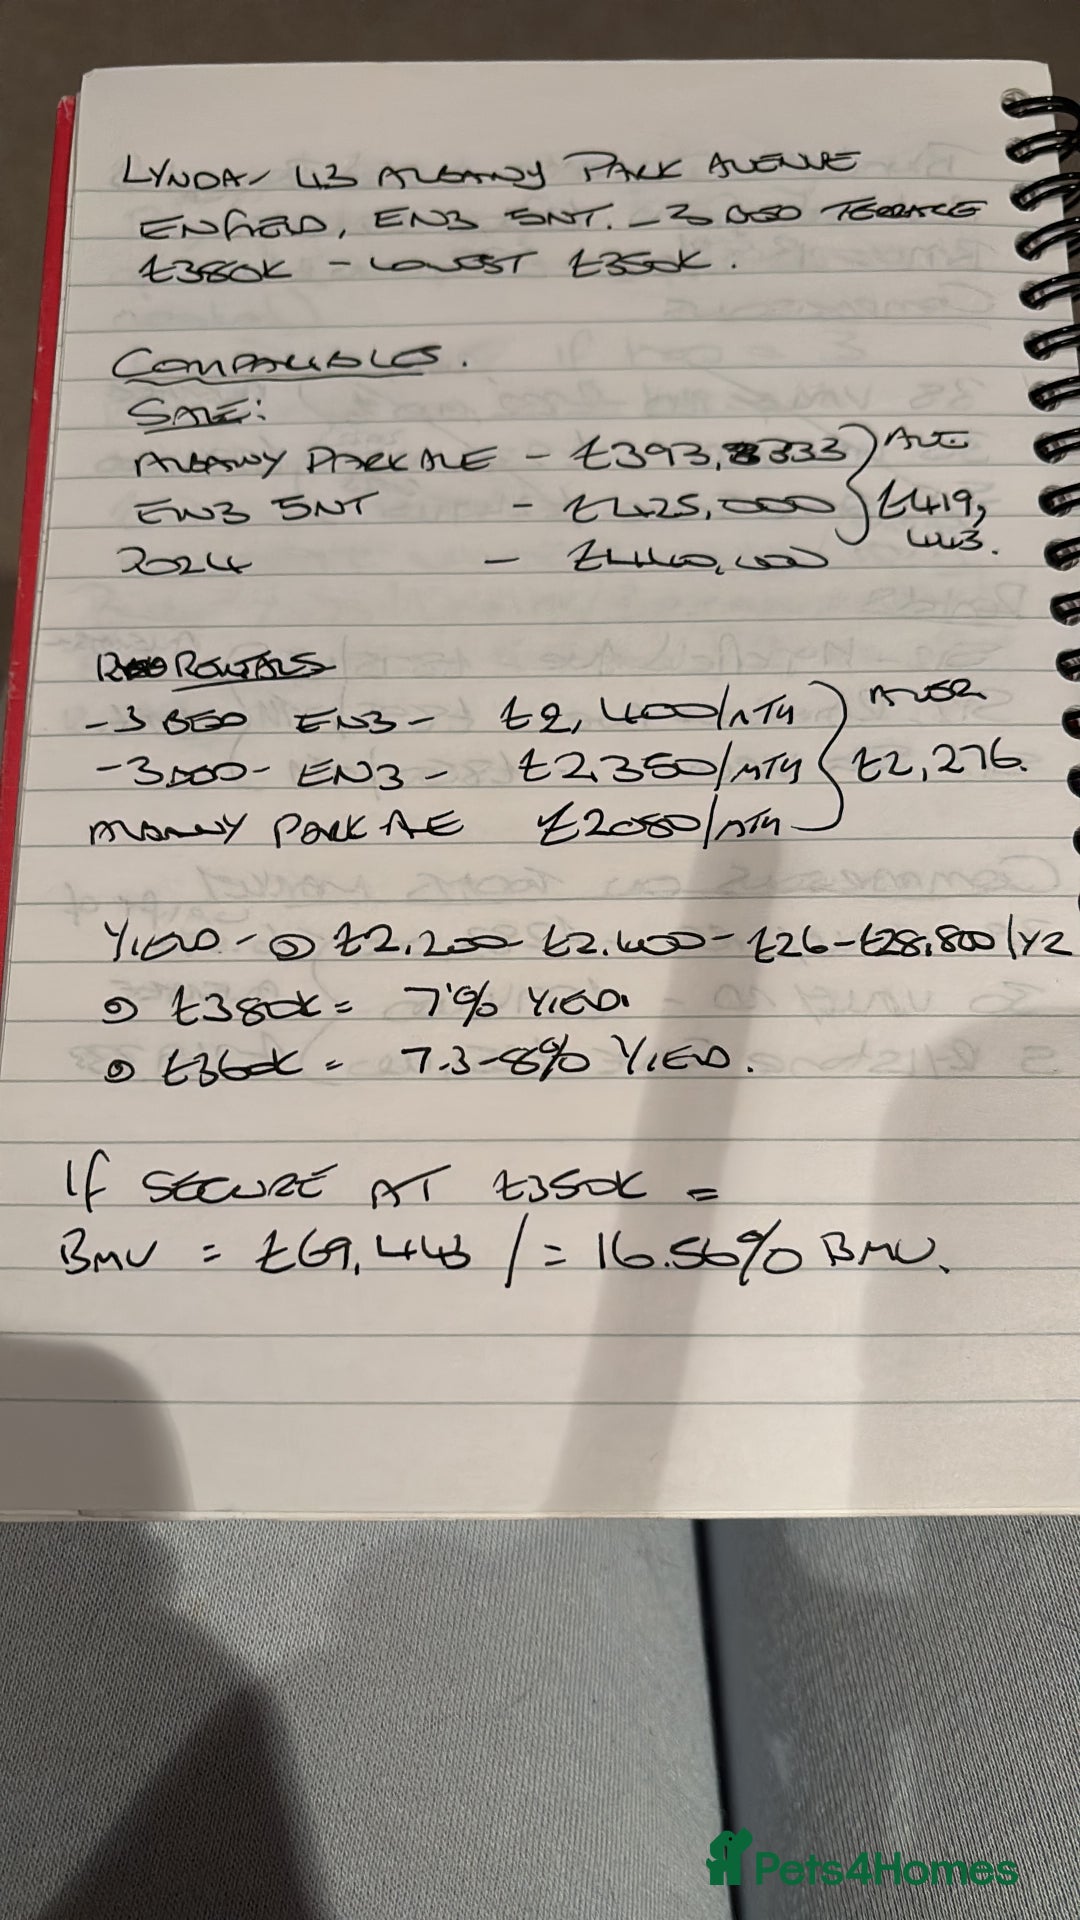 LYNDA- 43 ALBANY PARK AVENUE
ENFIELD, EN3 5NT. - 3 BED TERRACE
£380K - LOWEST £350K.
COMPARABLES.
SALE:
ALBANY PARK AVE - £393,333 } AVE
EN3 5NT - £425,000 } £419,
2024 - £440,000 443.
RENTALS
- 3 BED EN3 - £2,400/MTH } AVER
- 3 BED - EN3 - £2,350/MTH } £2,276.
ALBANY PARK AVE £2080/MTH
YIELD - @ £2,200 - £2,400 - £26 - £28,800/YR
@ £380K = 7% YIELD.
@ £360K = 7.3-8% YIELD.
If SECURE AT £350K =
BMV = £69,443 / = 16.56% BMV.
Pets4Homes